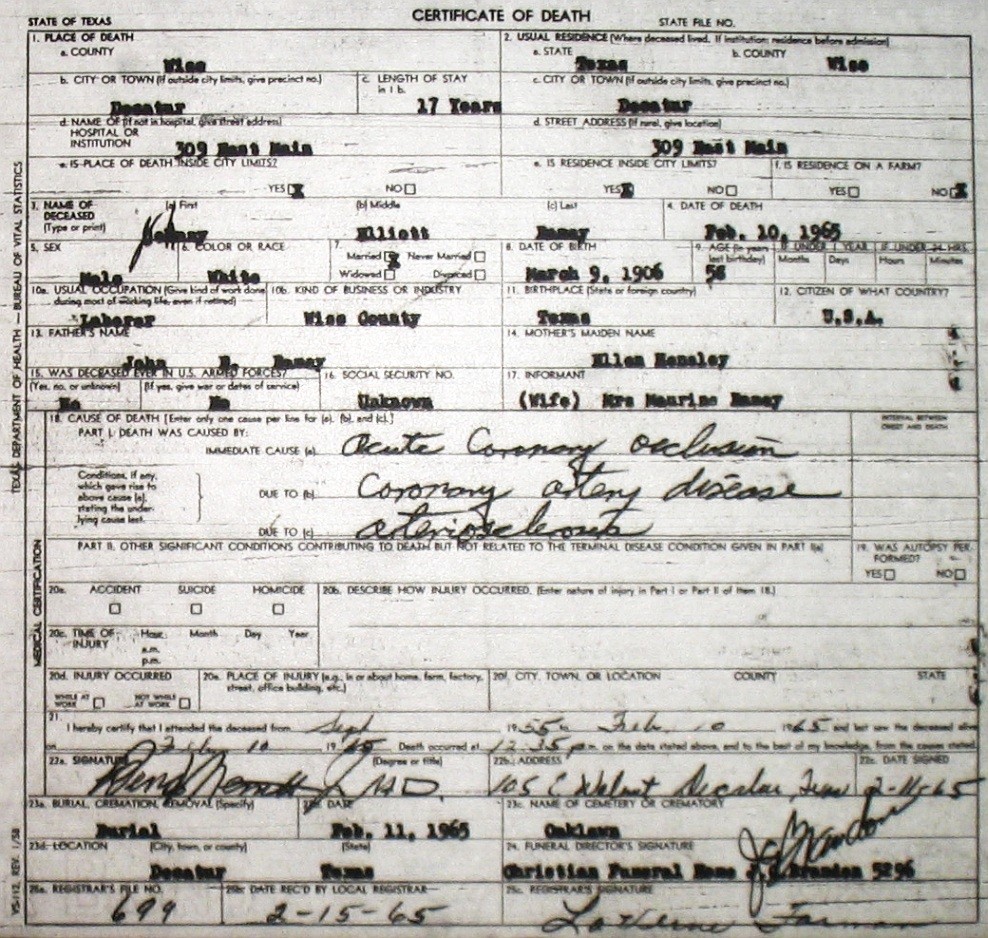 CERTIFICATE OF DEATH
STATE OF TEXAS STATE FILE NO.
1. PLACE OF DEATH 2. USUAL RESIDENCE (Where deceased lived. If institution: residence before admission)
a. COUNTY a. STATE b. COUNTY
Wise Texas Wise
b. CITY OR TOWN (If outside city limits, give precinct no.) c. LENGTH OF STAY in 1 b. c. CITY OR TOWN (If outside city limits, give precinct no.)
Decatur 17 Years Decatur
d. NAME OF (If not in hospital, give street address) d. STREET ADDRESS (If rural, give location)
HOSPITAL OR
INSTITUTION 309 East Main 309 East Main
e. IS PLACE OF DEATH INSIDE CITY LIMITS? e. IS RESIDENCE INSIDE CITY LIMITS? f. IS RESIDENCE ON A FARM?
YES X NO YES X NO YES NO X
3. NAME OF DECEASED (Type or print) (a) First (b) Middle (c) Last 4. DATE OF DEATH
Elliott Ramey Feb. 10, 1965
5. SEX 6. COLOR OR RACE 7. 8. DATE OF BIRTH 9. AGE (In years last birthday) IF UNDER 1 YEAR IF UNDER 24 HRS.
Married X Never Married Months Days Hours Minutes
Male White Widowed Divorced March 9, 1906 58
10a. USUAL OCCUPATION (Give kind of work done during most of working life, even if retired) 10b. KIND OF BUSINESS OR INDUSTRY 11. BIRTHPLACE (State or foreign country) 12. CITIZEN OF WHAT COUNTRY?
Laborer Wise County Texas U.S.A.
13. FATHER'S NAME 14. MOTHER'S MAIDEN NAME
John Ramey Ellen Hensley
15. WAS DECEASED EVER IN U.S. ARMED FORCES? 16. SOCIAL SECURITY NO. 17. INFORMANT
(Yes, no, or unknown) (If yes, give war or dates of service)
No No Unknown (Wife) Mrs Maurine Ramey
18. CAUSE OF DEATH [Enter only one cause per line for (a), (b), and (c).] INTERVAL BETWEEN ONSET AND DEATH
PART I. DEATH WAS CAUSED BY:
IMMEDIATE CAUSE (a) Acute Coronary occlusion
Conditions, if any, which gave rise to above cause (a), stating the underlying cause last.
DUE TO (b) Coronary artery disease
DUE TO (c) arteriosclerosis
PART II. OTHER SIGNIFICANT CONDITIONS CONTRIBUTING TO DEATH BUT NOT RELATED TO THE TERMINAL DISEASE CONDITION GIVEN IN PART I(a) 19. WAS AUTOPSY PERFORMED?
YES NO
20a. ACCIDENT SUICIDE HOMICIDE 20b. DESCRIBE HOW INJURY OCCURRED. (Enter nature of injury in Part I or Part II of item 18.)
20c. TIME OF INJURY Hour Month Day Year
a.m.
p.m.
20d. INJURY OCCURRED 20e. PLACE OF INJURY (e.g., in or about home, farm, factory, street, office building, etc.) 20f. CITY, TOWN, OR LOCATION COUNTY STATE
WHILE AT WORK NOT WHILE AT WORK
21.
I hereby certify that I attended the deceased from Sept 1955 Feb. 10 1965 and last saw the deceased alive
on Feb 10 1965 Death occurred at 12:35 p.m. on the date stated above, and to the best of my knowledge, from the causes stated.
22a. SIGNATURE (Degree or title) 22b. ADDRESS 22c. DATE SIGNED
M.D. 105 E Walnut Decatur, Texas 2-11-65
23a. BURIAL, CREMATION, REMOVAL (Specify) 23b. DATE 23c. NAME OF CEMETERY OR CREMATORY
Burial Feb. 11, 1965 Oaklawn
23d. LOCATION (City, town, or county) (State) 24. FUNERAL DIRECTOR'S SIGNATURE
Decatur Texas Christian Funeral Home 5296
25a. REGISTRAR'S FILE NO. 25b. DATE REC'D BY LOCAL REGISTRAR 25c. REGISTRAR'S SIGNATURE
699 2-15-65 LaVerne
TEXAS DEPARTMENT OF HEALTH — BUREAU OF VITAL STATISTICS
MEDICAL CERTIFICATION
VS-112, REV. 1/58